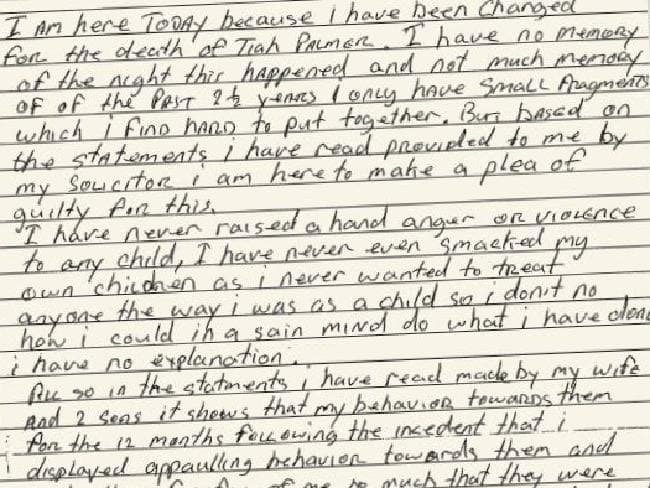 I Am here TODAY because i have been Charged
for the death of Tiah Palmer. I have no memory
of the night this happened and not much memory
OF of the PAST 2½ years I only HAVE Small fragments
which i find HARD to put together. But based on
the statements i have read provided to me by
my Solicitor i am here to make a plea of
guilty for this.
I have never raised a hand anger or violence
to any child, I have never even smacked my
own children as i never wanted to treat
anyone the way i was as a child so i don't no
how i could in a sain mind do what i have done
i have no explanation.
All so in the statments i have read made by my wife
And 2 sons it shows that my behavior towards them
for the 12 months following the incedent that i
displayed appaulling behavior towards them and
of me so much that they were